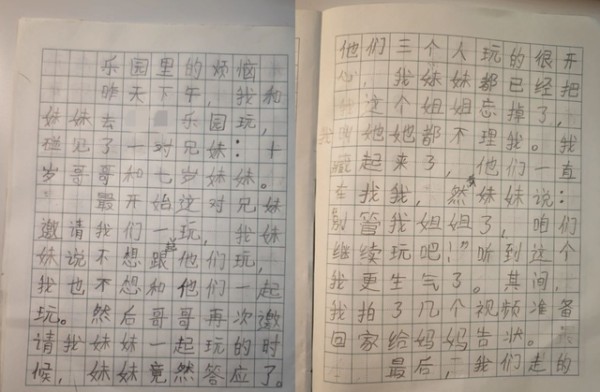 乐园里的烦恼
昨天下午，我和
妹妹去 乐园玩，
碰见了一对兄妹：十
岁哥哥和七岁妹妹。
最开始这对兄妹
邀请我们一玩，我妹
妹说不想跟他们玩，
我也不想和他们一起
玩。然后哥哥再次邀
请我妹妹一起玩的时
候，妹妹竟然答应了。
他们三个人玩的很开
心，我妹妹都已经把
这个姐姐忘掉了，
她她都不理我。我
起来了，他们一直
在找我，然妹妹说：
别管我姐姐了，咱们
继续玩吧！”听到这个
我更生气了。其间，
我拍了几个视频准备
回家给妈妈告状。
最后，我们走的